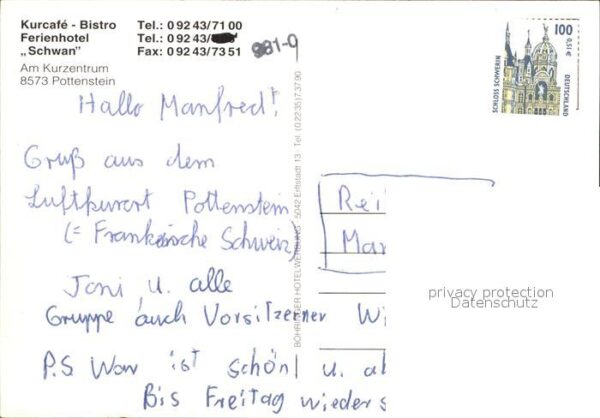 Kurcafé - Bistro Tel.: 0 92 43/71 00
Ferienhotel Tel.: 0 92 43/
„Schwan" Fax: 0 92 43/73 51
981-0
Am Kurzentrum
8573 Pottenstein
100
0,51€
SCHLOSS SCHWERIN
DEUTSCHLAND
Hallo Manfred!
Gruß aus dem
Luftkurort Pottenstein
(= Frankische Schweiz)
Joni u. alle
Gruppe auch Vorsitzerner Wi
P.S Wow ist schön! u. al
Bis Freitag wieders
BÖHRINGER HOTELWERBUNG · 5042 Erftstadt 13 · Tel. (0 22 35) 7 37 90
Rei
Man
privacy protection
Datenschutz